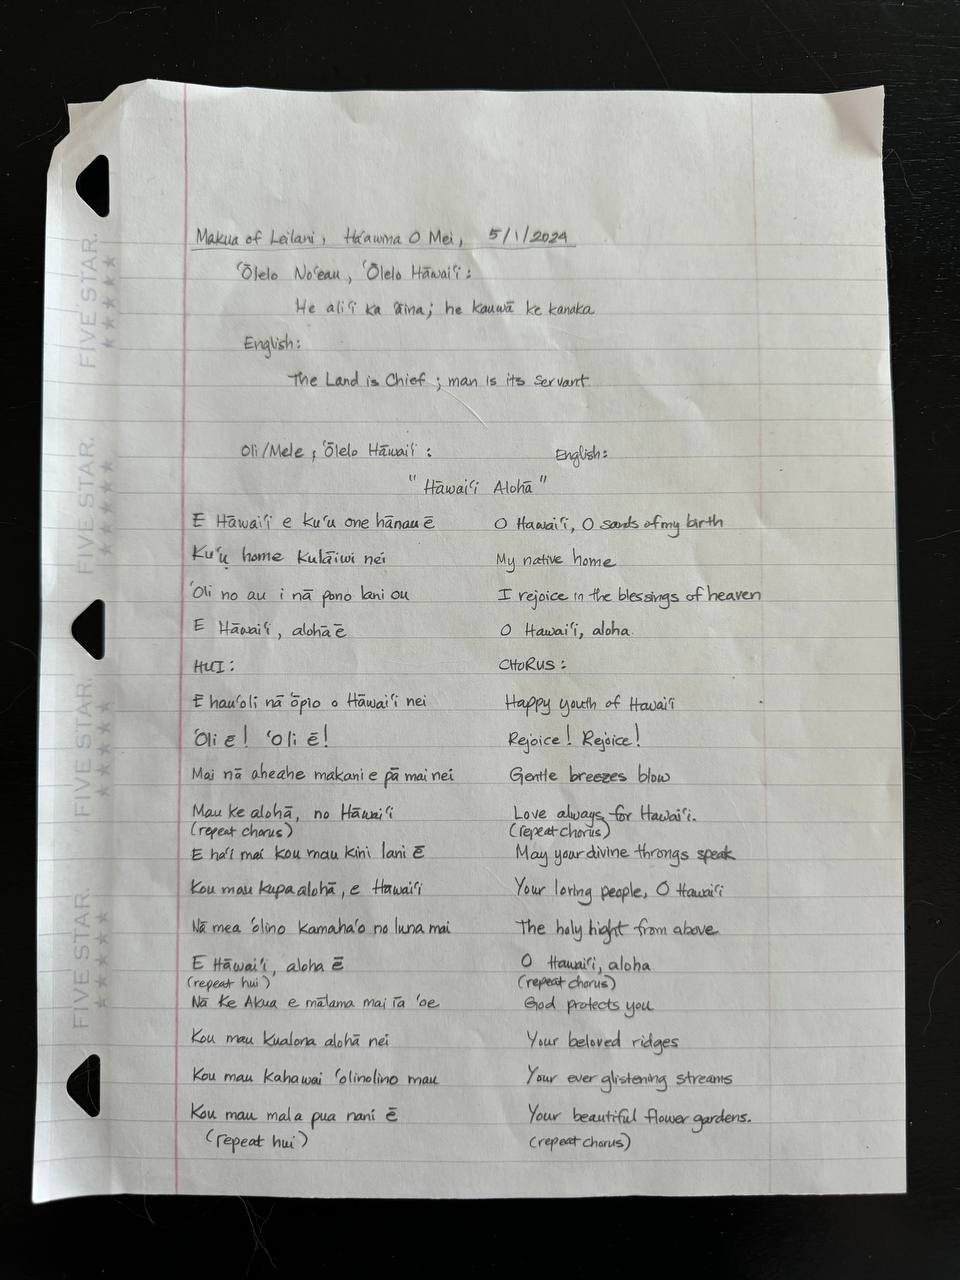 Makua of Leilani, Haʻawina O Mei, 5/1/2024
ʻŌlelo Noʻeau, ʻŌlelo Hāwaiʻi:
He aliʻi ka ʻāina; he kauwā ke kanaka
English:
The Land is Chief; man is its servant
Oli/Mele, ʻŌlelo Hāwaiʻi: English:
"Hāwaiʻi Alohā"
E Hāwaiʻi e kuʻu one hānau ē O Hawaiʻi, O sands of my birth
Kuʻu home kulāiwi nei My native home
ʻOli no au i nā pono lani ou I rejoice in the blessings of heaven
E Hāwaiʻi, alohā ē O Hawaiʻi, aloha.
HUI: CHORUS:
E hauʻoli nā ʻōpio o Hāwaiʻi nei Happy youth of Hawaiʻi
ʻOli ē! ʻOli ē! Rejoice! Rejoice!
Mai nā aheahe makani e pā mai nei Gentle breezes blow
Mau ke alohā, no Hāwaiʻi Love always for Hawaiʻi.
(repeat chorus) (repeat chorus)
E haʻi mai kou mau kini lani ē May your divine throngs speak
Kou mau kupa alohā, e Hawaiʻi Your loving people, O Hawaiʻi
Nā mea ʻōlino kamahaʻo no luna mai The holy hight from above
E Hāwaiʻi, aloha ē O Hawaiʻi, aloha
(repeat hui) (repeat chorus)
Nā Ke Akua e mālama mai iā ʻoe God protects you
Kou mau kualona alohā nei Your beloved ridges
Kou mau kahawai ʻolinolino mau Your ever glistening streams
Kou mau mala pua nani ē Your beautiful flower gardens.
(repeat hui) (repeat chorus)
FIVE STAR.
FIVE STAR.
FIVE STAR.
FIVE STAR.